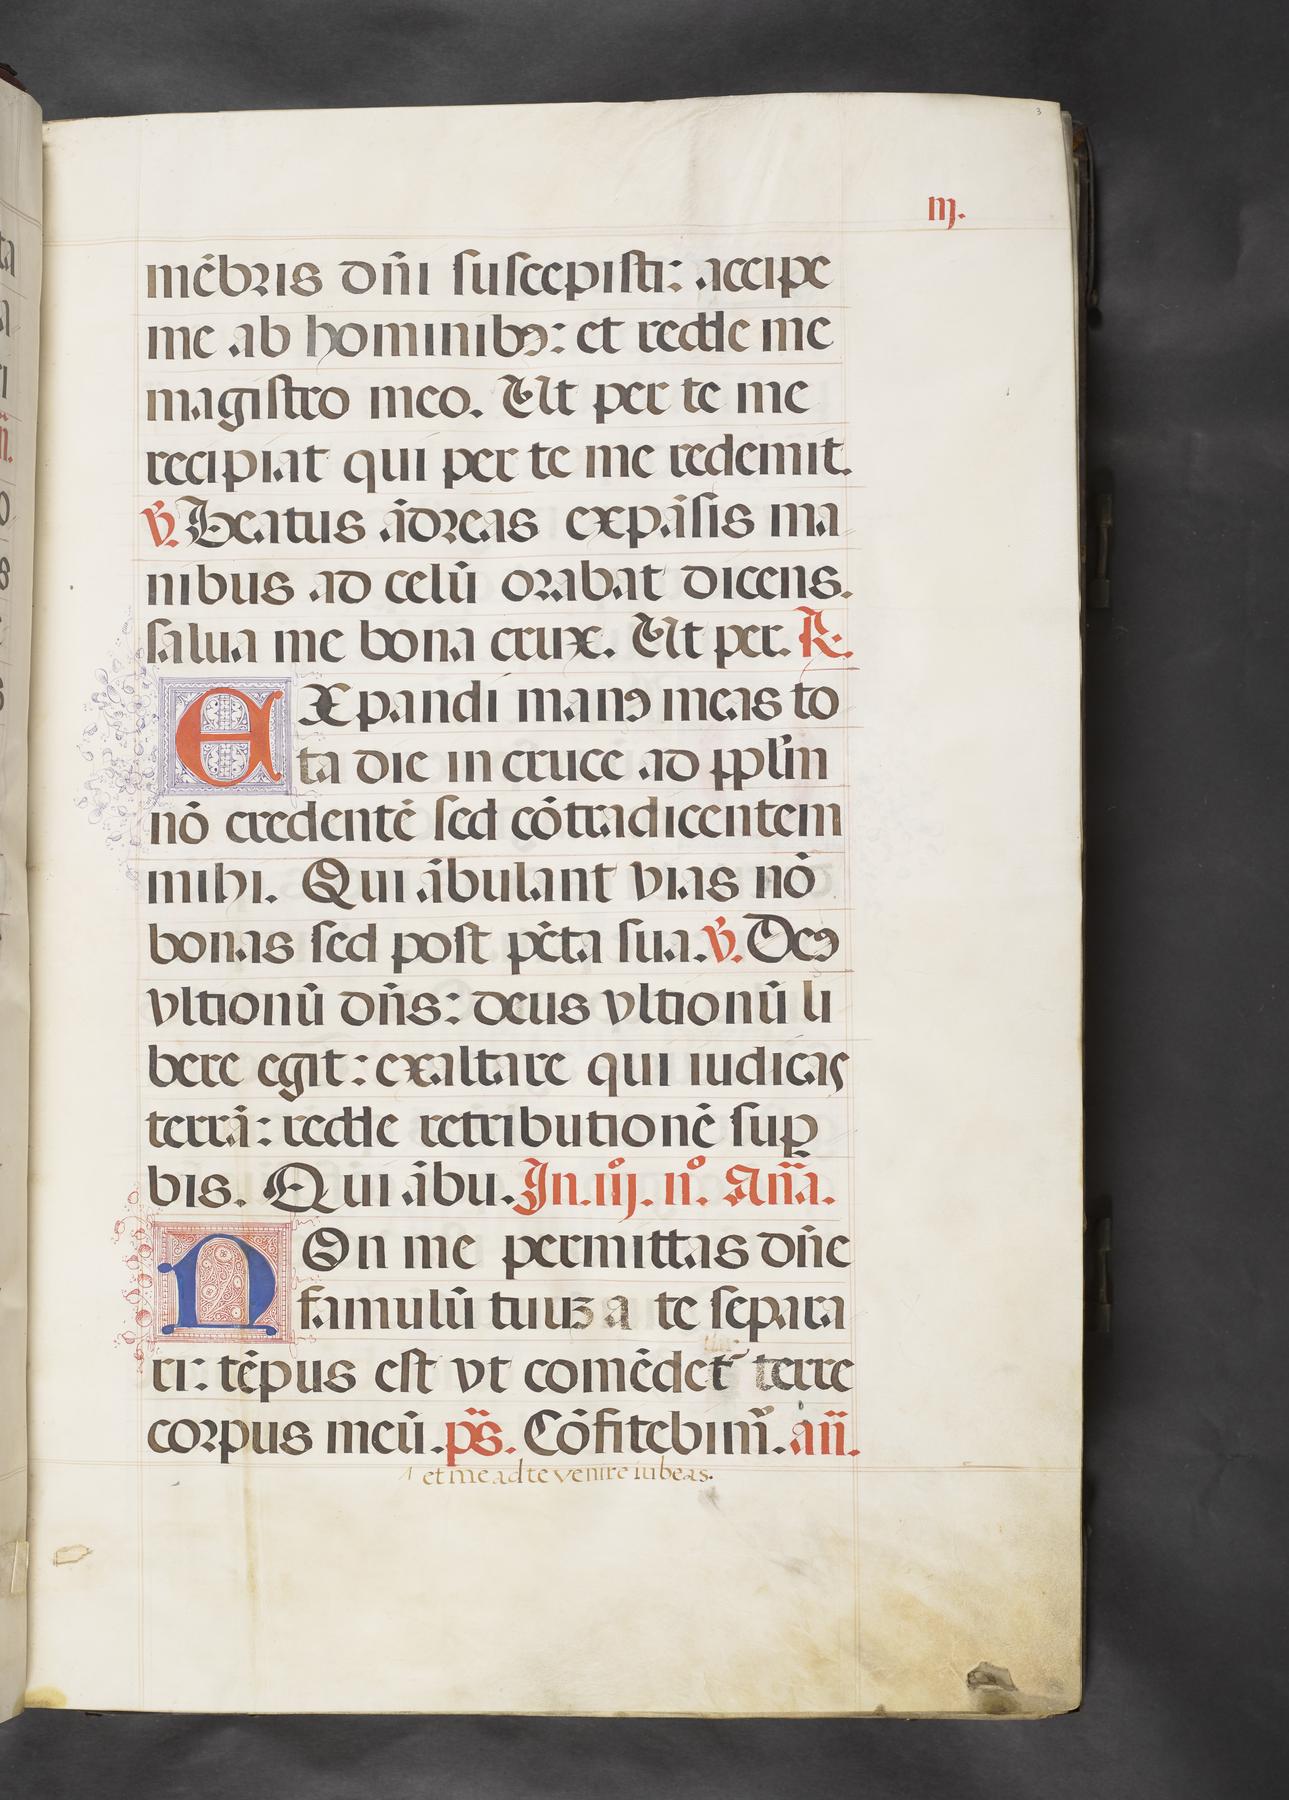 3
iij.
mēbris dn̄i suscepisti: accipe
me ab hominibꝯ: et redde me
magistro meo. Ut per te me
recipiat qui per te me redemit.
℣. Beatus ādreas expāsis ma
nibus ad celū orabat dicens.
salua me bona crux. Ut per. ℟.
EXpandi manꝯ meas to
ta die in cruce ad pplm̄
nō credentē sed cōtradicentem
mihi. Qui ābulant vias nō
bonas sed post pc̄ta sua. ℣. Deꝯ
vltionū dn̄s: deus vltionū li
bere egit: exaltare qui iudicas
terrā: redde retributionē suꝑ
bis. Qui ābu. In. iij. nº. An̄a.
NOn me permittas dn̄e
famulū tuuꝫ a te separa
ri: tēpus est vt comēdet̄ terre
corpus meū. ps̄. Cōfitebim̄. an̄.
et me ad te venire iubeas.